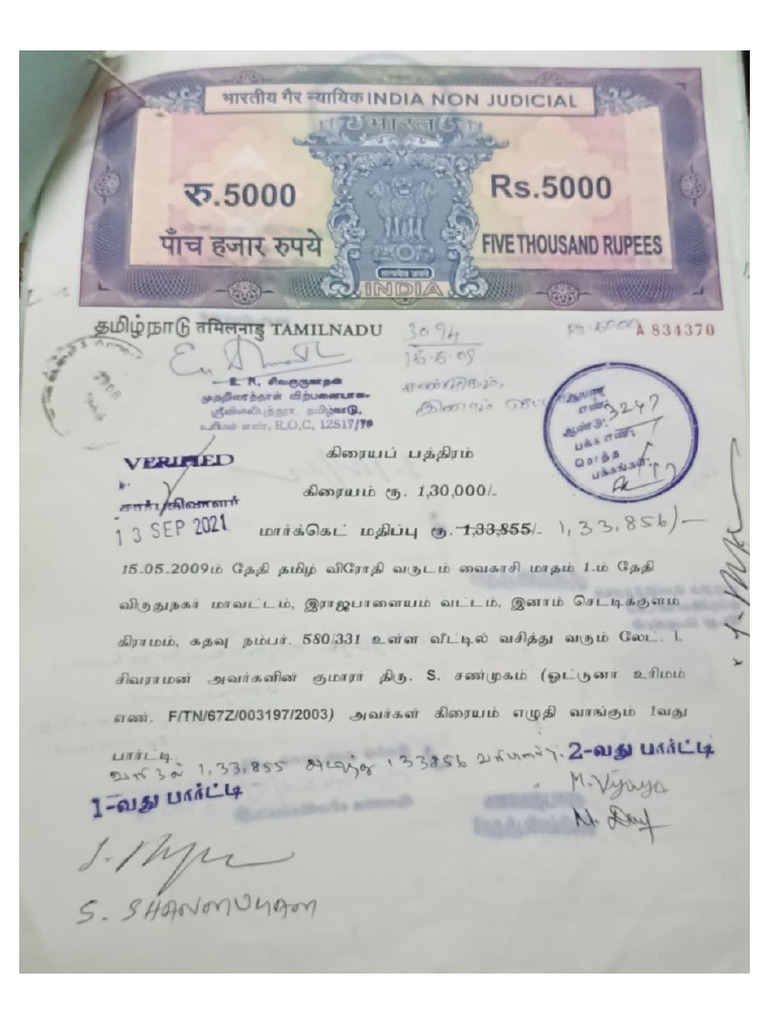 भारतीय गैर न्यायिक INDIA NON JUDICIAL
भारत
रु.5000 Rs.5000
पाँच हजार रुपये FIVE THOUSAND RUPEES
सत्यमेव जयते
INDIA
தமிழ்நாடு तमिलनाडु TAMILNADU 3094 Rs.5000 A 834370
15.5.09
சண்முகம்,
இனாம்
முத்திரைத்தாள் விற்பனையாளர்
R.O.C, 12517/
3247
ஆண்டு:
பக்க எண்:
மொத்த
பக்கங்கள்:
VERIFIED கிரையப் பத்திரம்
சார்பதிவாளர் கிரையம் ரூ. 1,30,000/-
13 SEP 2021 மார்க்கெட் மதிப்பு ரூ. 1,33,855/- 1,33,856/-
15.05.2009ம் தேதி தமிழ் விரோதி வருடம் வைகாசி மாதம் 1-ம் தேதி
விருதுநகர் மாவட்டம், இராஜபாளையம் வட்டம், இனாம் செட்டிக்குளம்
கிராமம், கதவு நம்பர். 580/331 உள்ள வீட்டில் வசித்து வரும் லேட். I.
சிவராமன் அவர்களின் குமாரர் திரு. S. சண்முகம் (ஓட்டுனர் உரிமம்
எண். F/TN/67Z/003197/2003) அவர்கள் கிரையம் எழுதி வாங்கும் 1வது
பார்ட்டி.
வரி 3ல் 1,33,855 அடித்து 133856
1-வது பார்ட்டி 2-வது பார்ட்டி
M. Vijaya
S. SHANMUGAM